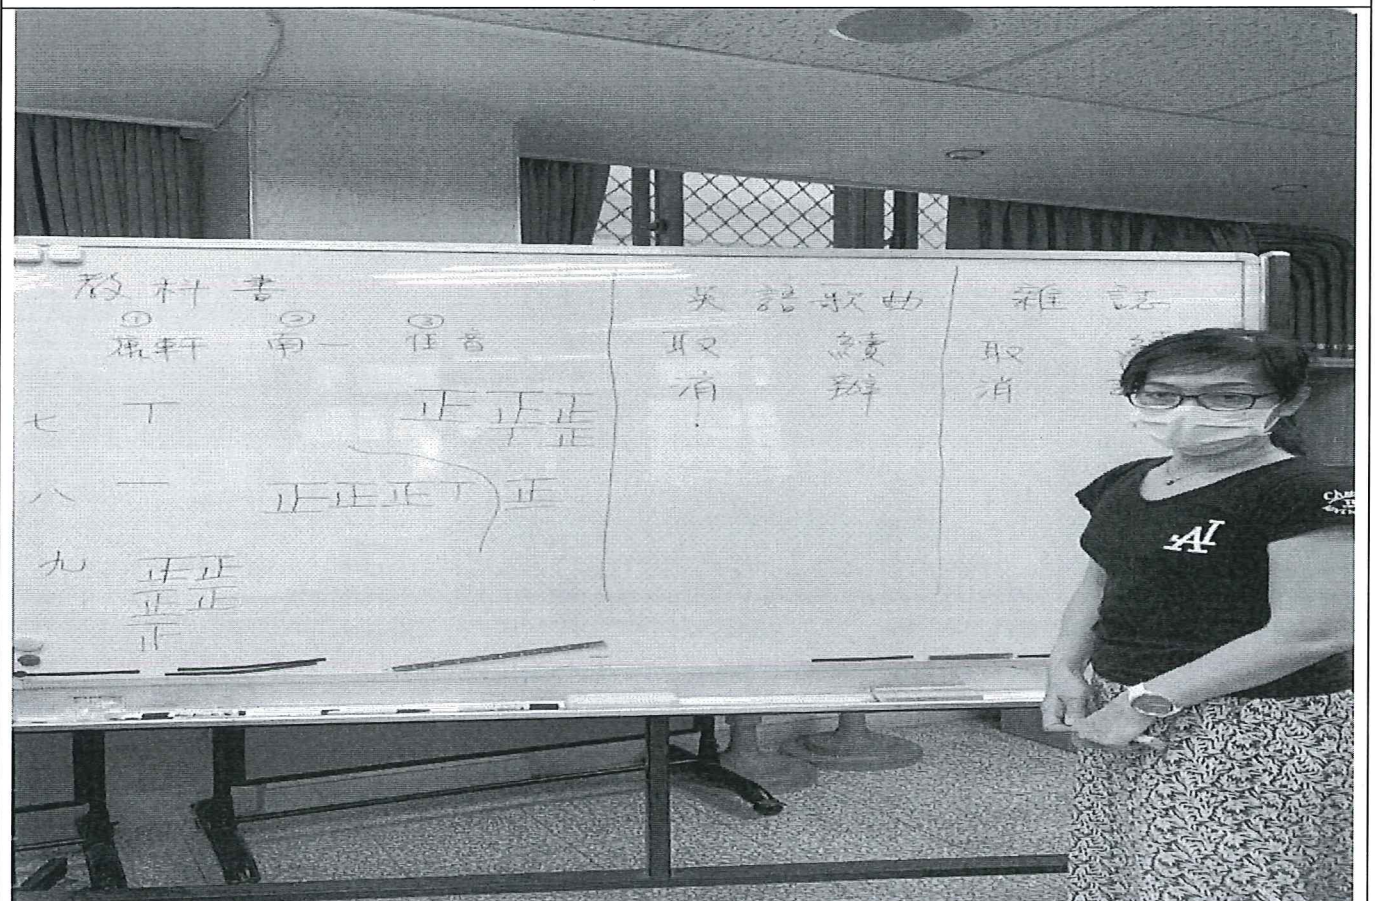 教科書
① ② ③
康軒 南一 佳音
七 丅 正 正 正
丅 正
八 一 正 正 正 丅 正
九 正 正
正 正
正
英語歌曲
取消 續辦
雜誌
取消
AI